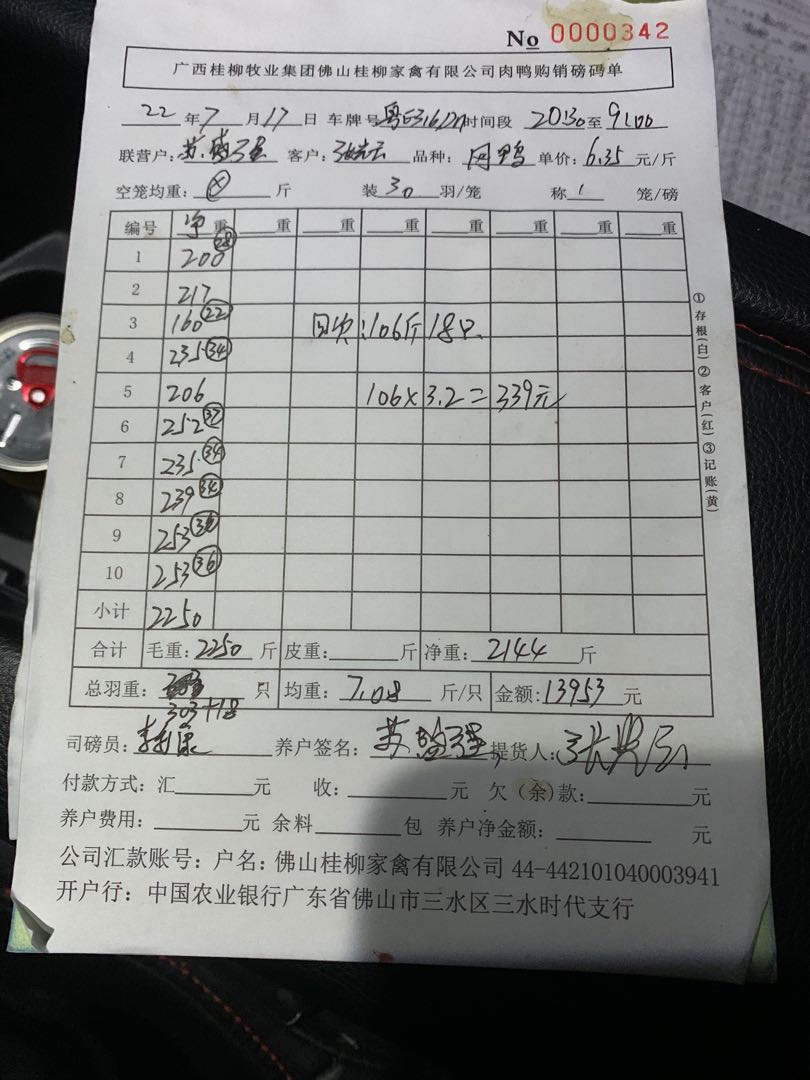 No 0000342
广西桂柳牧业集团佛山桂柳家禽有限公司肉鸭购销磅码单
22 年 7 月 17 日 车牌号 时间段 20:30 至 9:00
联营户: 客户: 品种: 单价: 6.35 元/斤
空笼均重: 斤 装 30 羽/笼 称 1 笼/磅
编号 净重 重 重 重 重 重 重 重
1 200 (28)
2 217
3 160 (22) 回收:106斤 18只
4 235 (34)
5 206 106×3.2=339元
6 252 (37)
7 235 (34)
8 239 (34)
9 253 (36)
10 253 (36)
小计 2250
合计 毛重: 2250 斤 皮重: 斤 净重: 2144 斤
总羽重: 只 均重: 7.08 斤/只 金额: 13953 元
303+18
司磅员: 养户签名: 提货人:
付款方式: 汇 元 收: 元 欠(余)款: 元
养户费用: 元 余料 包 养户净金额: 元
公司汇款账号: 户名: 佛山桂柳家禽有限公司 44-442101040003941
开户行: 中国农业银行广东省佛山市三水区三水时代支行
①存根(白)②客户(红)③记账(黄)